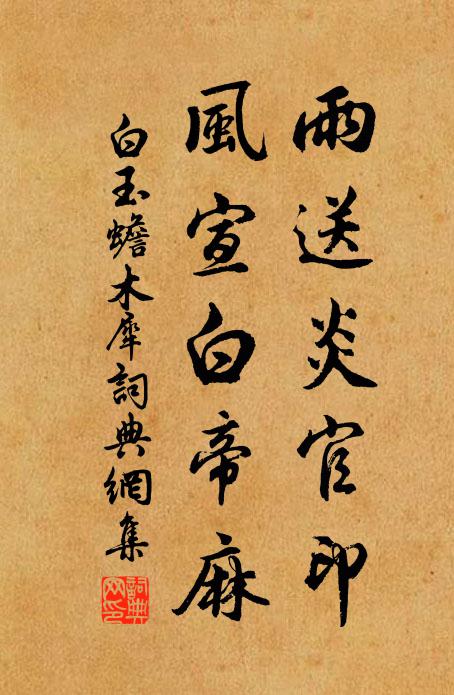 雨送炎官印
風宣白帝麻
白玉蟾木犀詞典網集
詞典網印